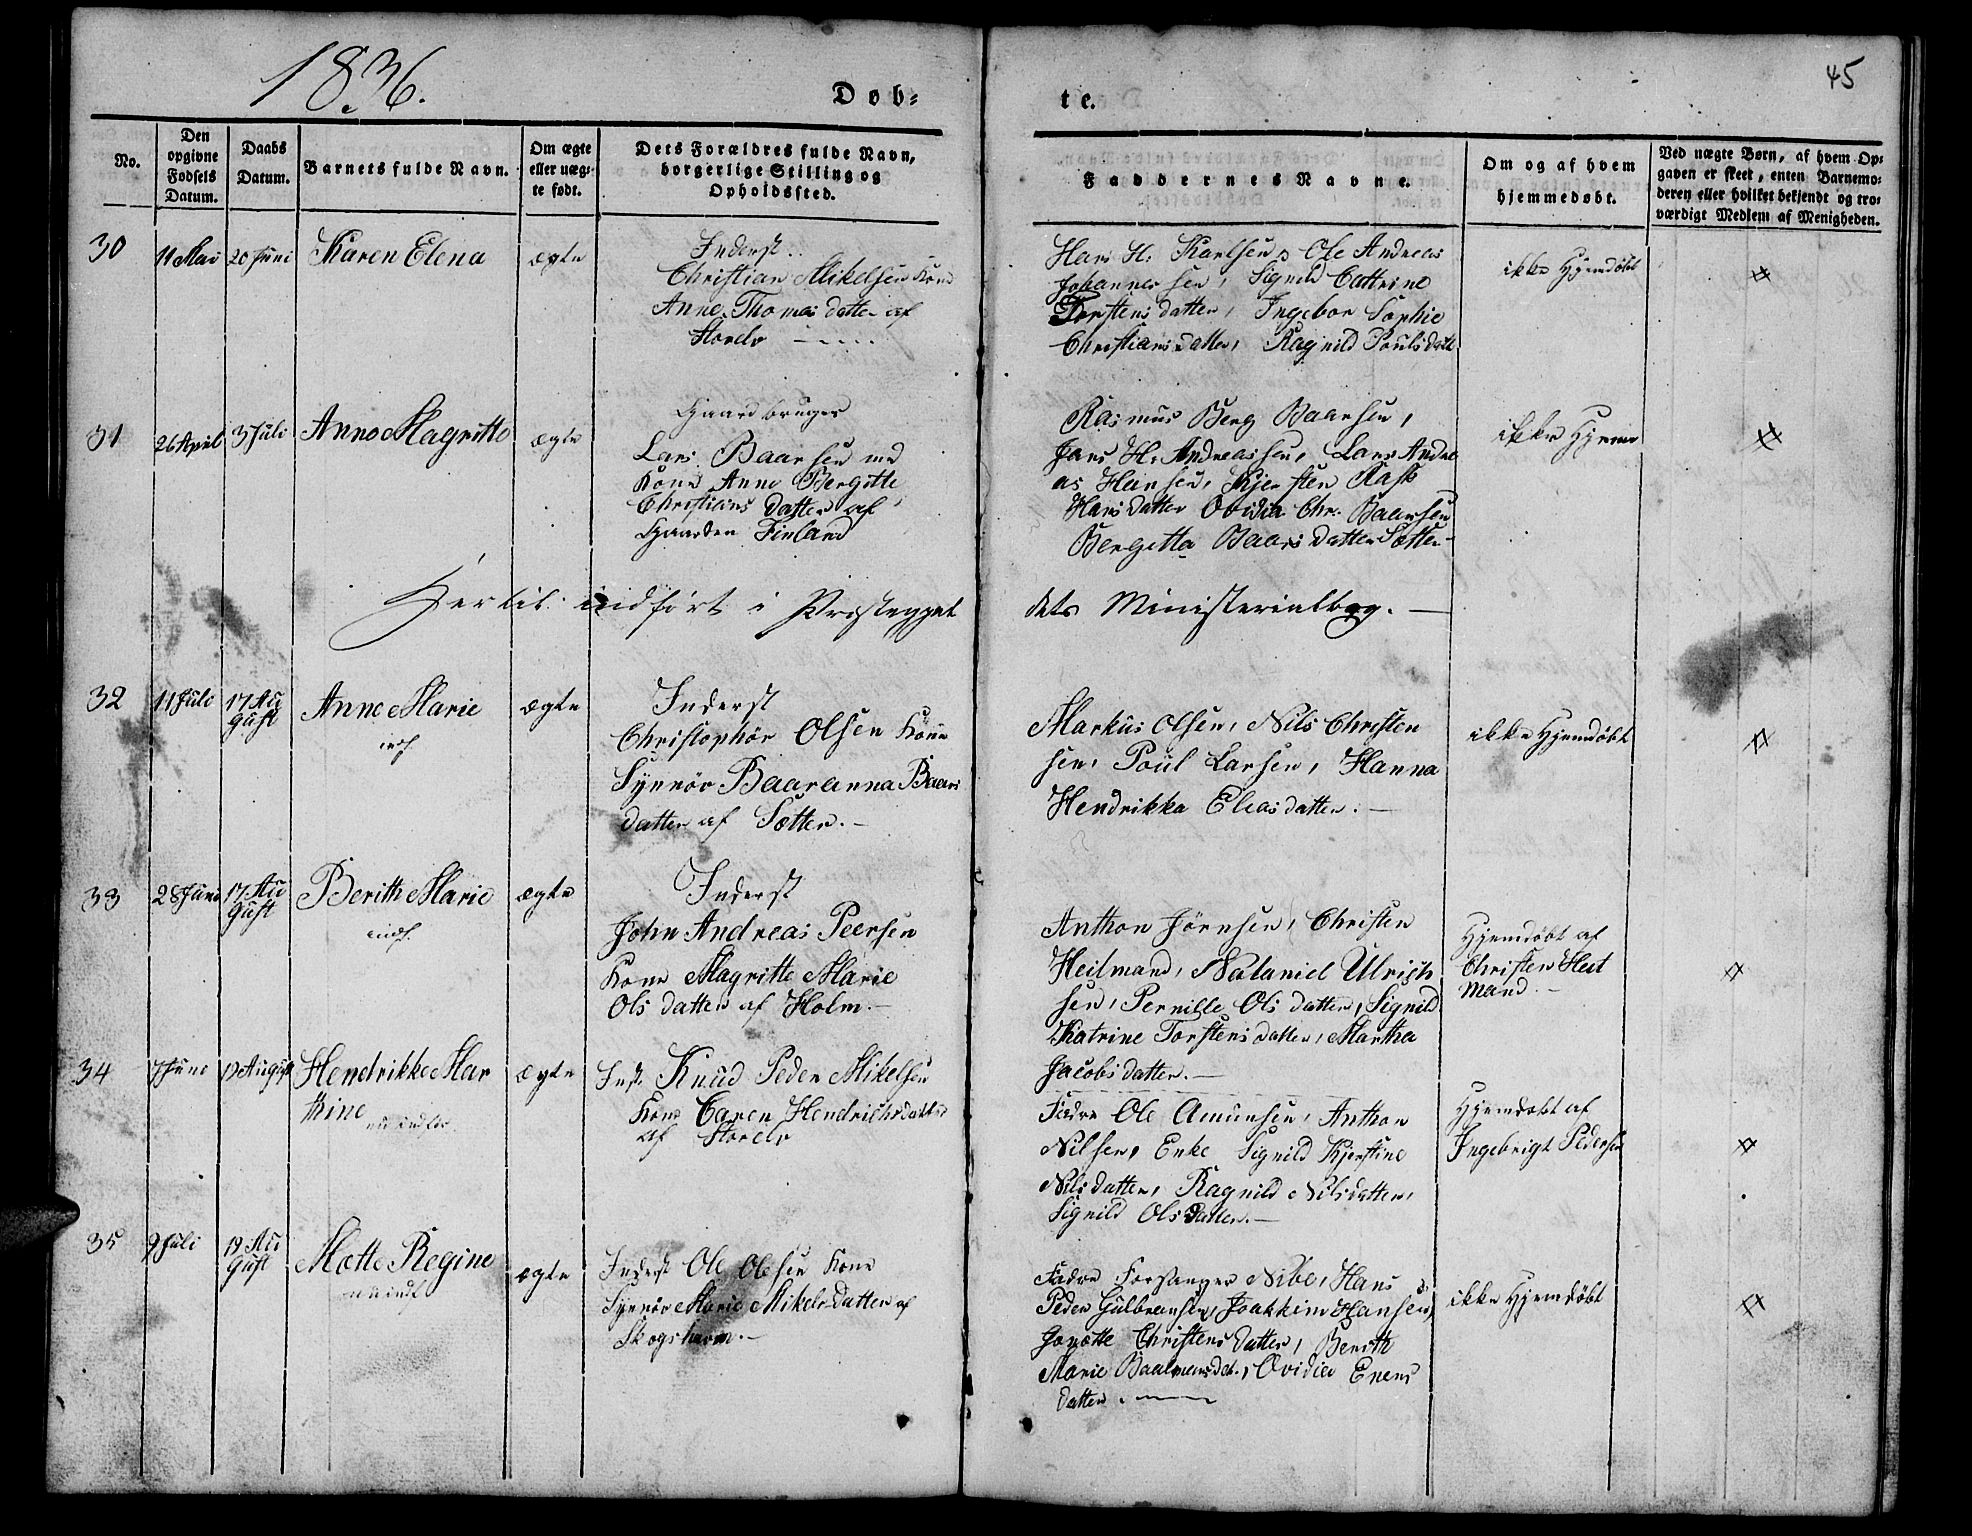 1836.
Døb-
te.
45
No.
Den opgivne Fødsels Datum.
Daabs Datum.
Barnets fulde Navn.
Om ægte eller uæg-
te født.
Dets Forældres fulde Navn,
borgerlige Stilling og
Opholdssted.
Faddernes Navne.
Om og af hvem
hjemmedøbt.
Ved uægte Børn, af hvem Op-
gaven er skeet, enten Barnemo-
deren eller hvilket bekjendt og tro-
værdigt Medlem af Menigheden.
30
11 Mai
20 Juni
Karen Elena
ægte
Inderst
Christian Mikelsen Kone
Anne Thomesdatter af
Storelv
Hans H. Karlsen, Ole Andreas
Johannessen, Signild Cattrine
Torstensdatter, Ingebor Sophie
Christiansdatter, Ragnild Poulsdatt
ikke Hjemdøbt
31
26 April
3 Juli
Anne Magritte
ægte
Gaardbruger
Lars Baarsen med
Kone Anne Bergitte
Christians datter af
Gaarden Finland
Rasmus Berg Baarsen,
Jens H. Andreassen, Lars Andre
as Hansen, Kjersten Rask
Hansdatter Ovidia Chr. Baarsen
Bergitta Baarsdatter Sætter
ikke Hjem
Hertil indført i Præstegjel
dets Ministerialbog.
32
11 Juli
17 Au
gust
Anne Marie
ægte
Inderst
Christophør Olsen Kone
Synnøv Baaranna Baars
datter af Sætter.
Markus Olsen, Nils Christen
sen, Poul Larsen, Hanna
Hendrikka Eliasdatter.
ikke Hjemdøbt
33
28 Juni
17 Au
gust
Berith Marie
indf.
ægte
Inderst
John Andreas Peersen
Kone Magritte Marie
Ols datter af Holm.
Anthon Jørnsen, Christen
Heitmand, Nataniel Ulrich
sen, Pernille Olsdatter, Signild
Katrine Torstensdatter, Martha
Jacobsdatter.
Hjemdøbt af
Christen Heit
mand.
34
7 Juni
19 August
Hendrikke Mar
thine
ægte
Inst. Knud Peder Mikelsen
Kone Caren Hendrichsdatter
af Storelv
Fadre Ole Amunsen, Anthon
Nilsen, Enke Signild Kjerstine
Nilsdatter, Ragnild Nilsdatter,
Signild Olsdatter.
Hjemdobt af
Ingebrigt Pedersen
35
9 Juli
19 Au
gust
Mette Regine
ægte
Inderst Ole Olsen Kone
Synnøv Marie Mikelsdatter af
Skogsham.
Fadre Forsanger Nibe, Hans
Peder Gulbransen, Joakkim Hansen,
Janette Christensdatter, Berith
Marie Baalmansdat., Ovidia Enens
datter.
ikke Hjemdøbt